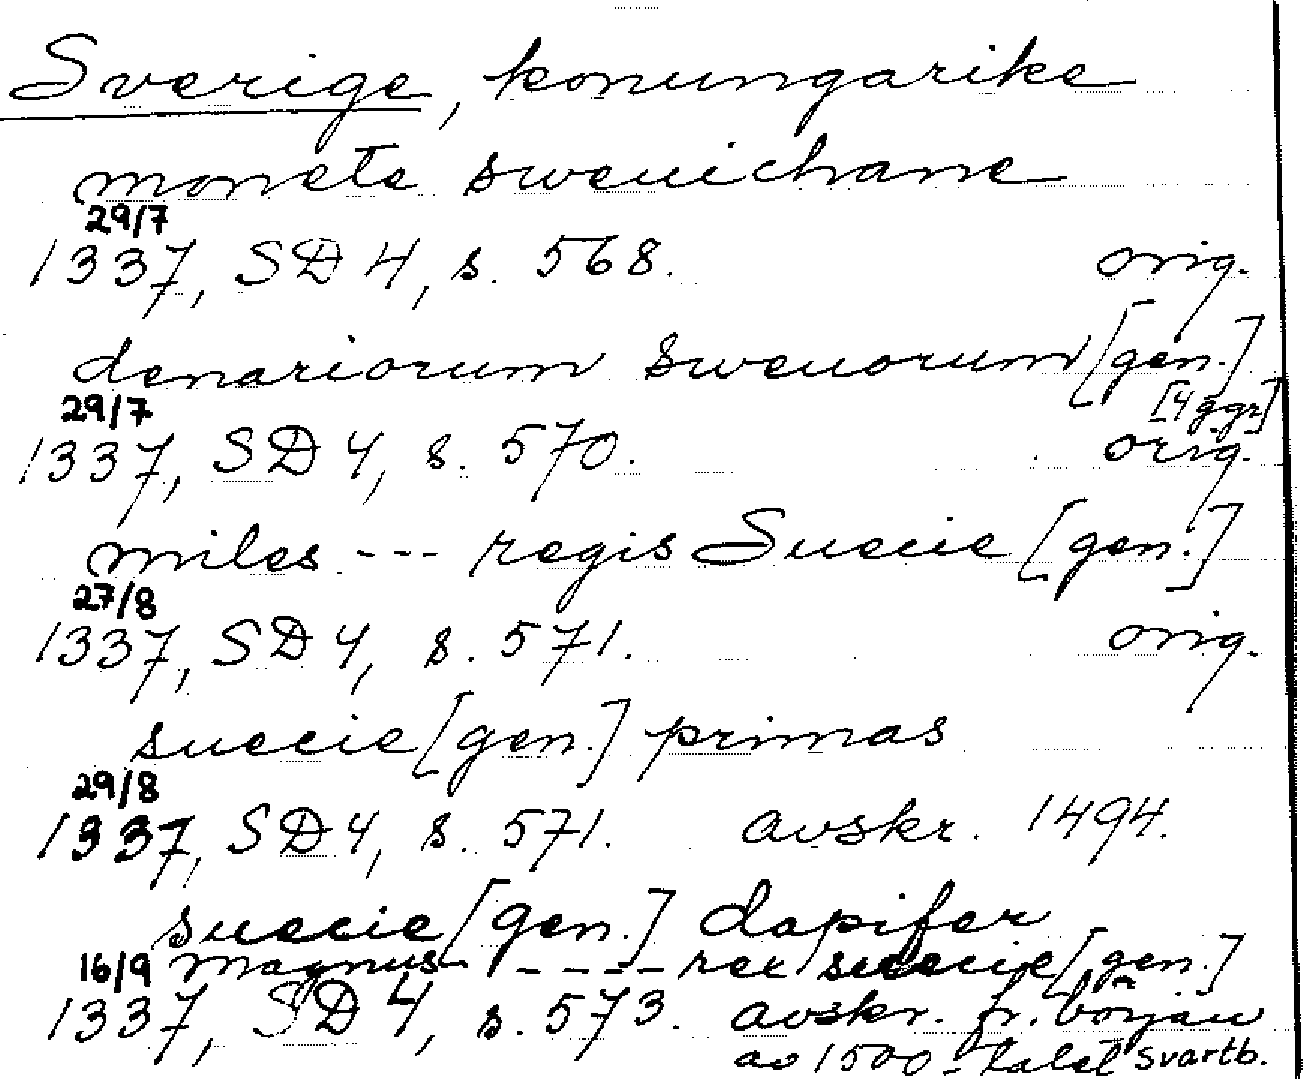 Sverige, konungarike
monete sweuichane
29/7
1337, SD 4, s. 568. orig.
denariorum sweuorum [gen.]
[4 ggr]
29/7
1337, SD 4, s. 570. orig.
miles --- regis Suecie [gen.]
27/8
1337, SD 4, s. 571. orig.
suecie [gen.] primas
29/8
1337, SD 4, s. 571. avskr. 1494.
suecie [gen.] dapifer
16/9 magnus - - - - - rex suecie [gen.]
1337, SD 4, s. 573. avskr. fr. början
av 1500-talet Svartb.